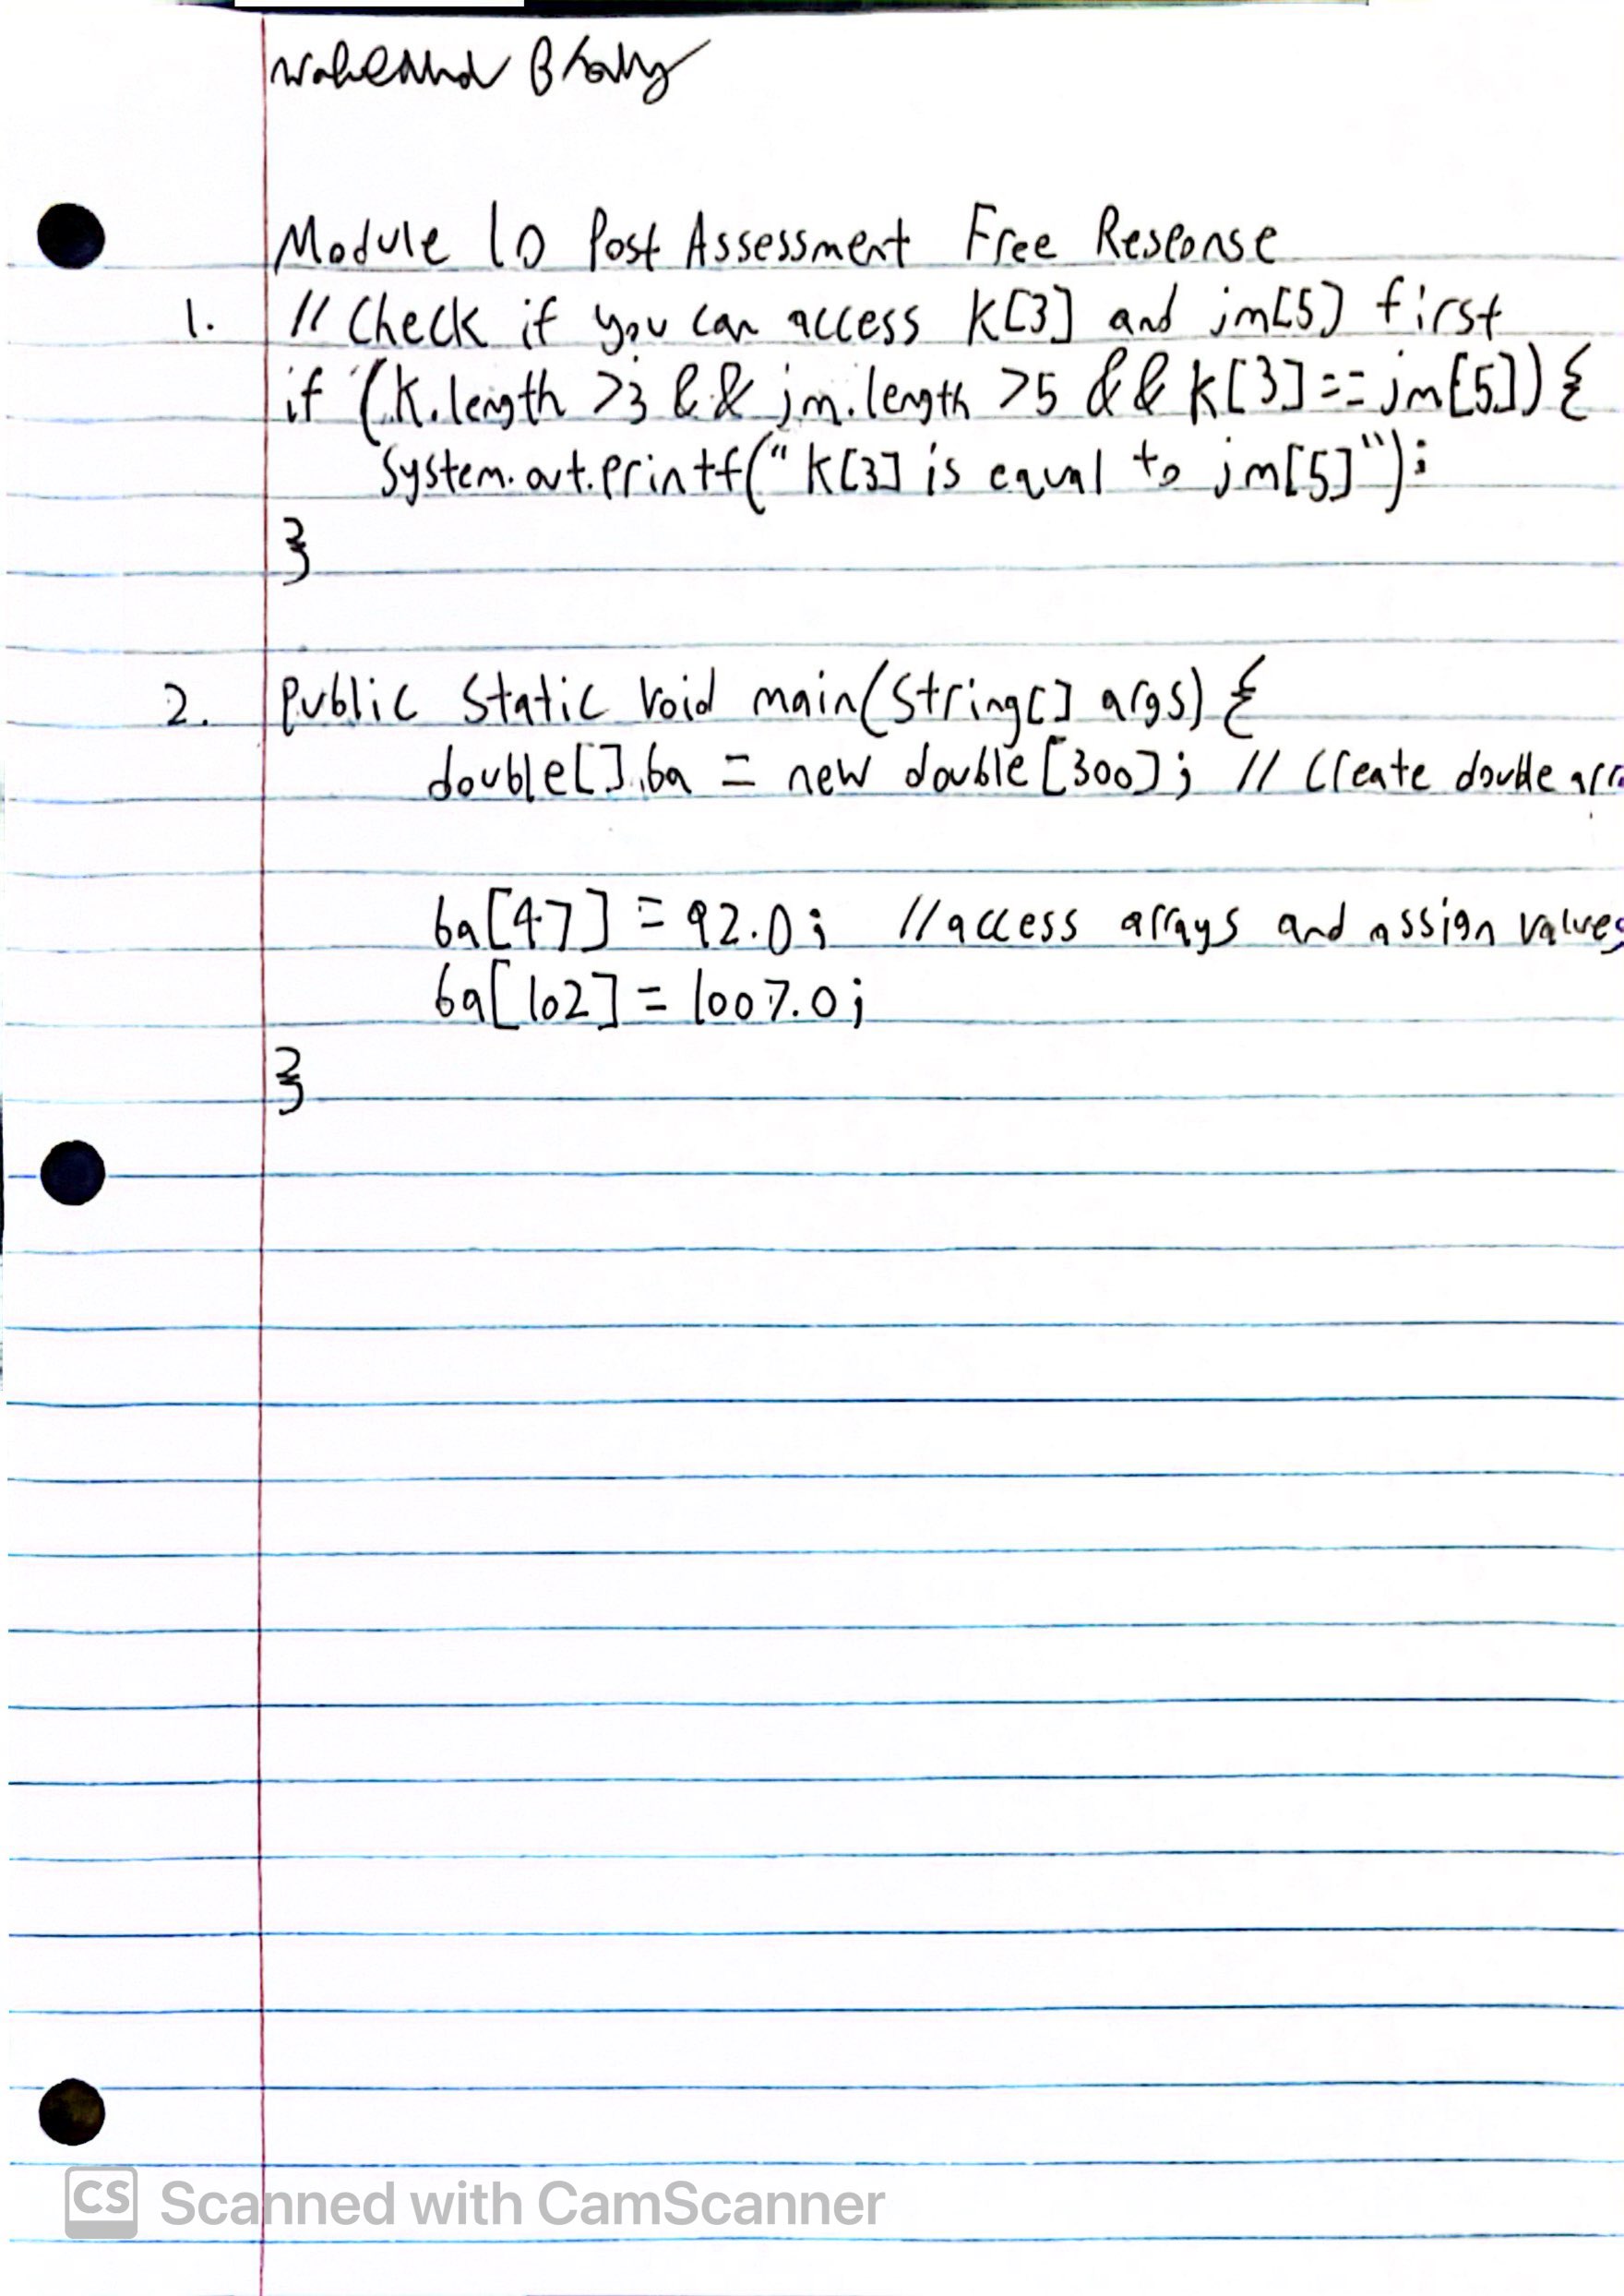 Module 10 Post Assessment Free Response
1. // Check if you can access K[3] and jm[5] first
if (K.length >3 && jm.length >5 && K[3]==jm[5]){
System.out.printf("K[3] is equal to jm[5]");
}
2. Public Static Void main(String[] args) {
double[] ba = new double[300]; // Create double arr
ba[47] = 92.0; //access arrays and assign values
ba[102] = 1007.0;
}
CS Scanned with CamScanner